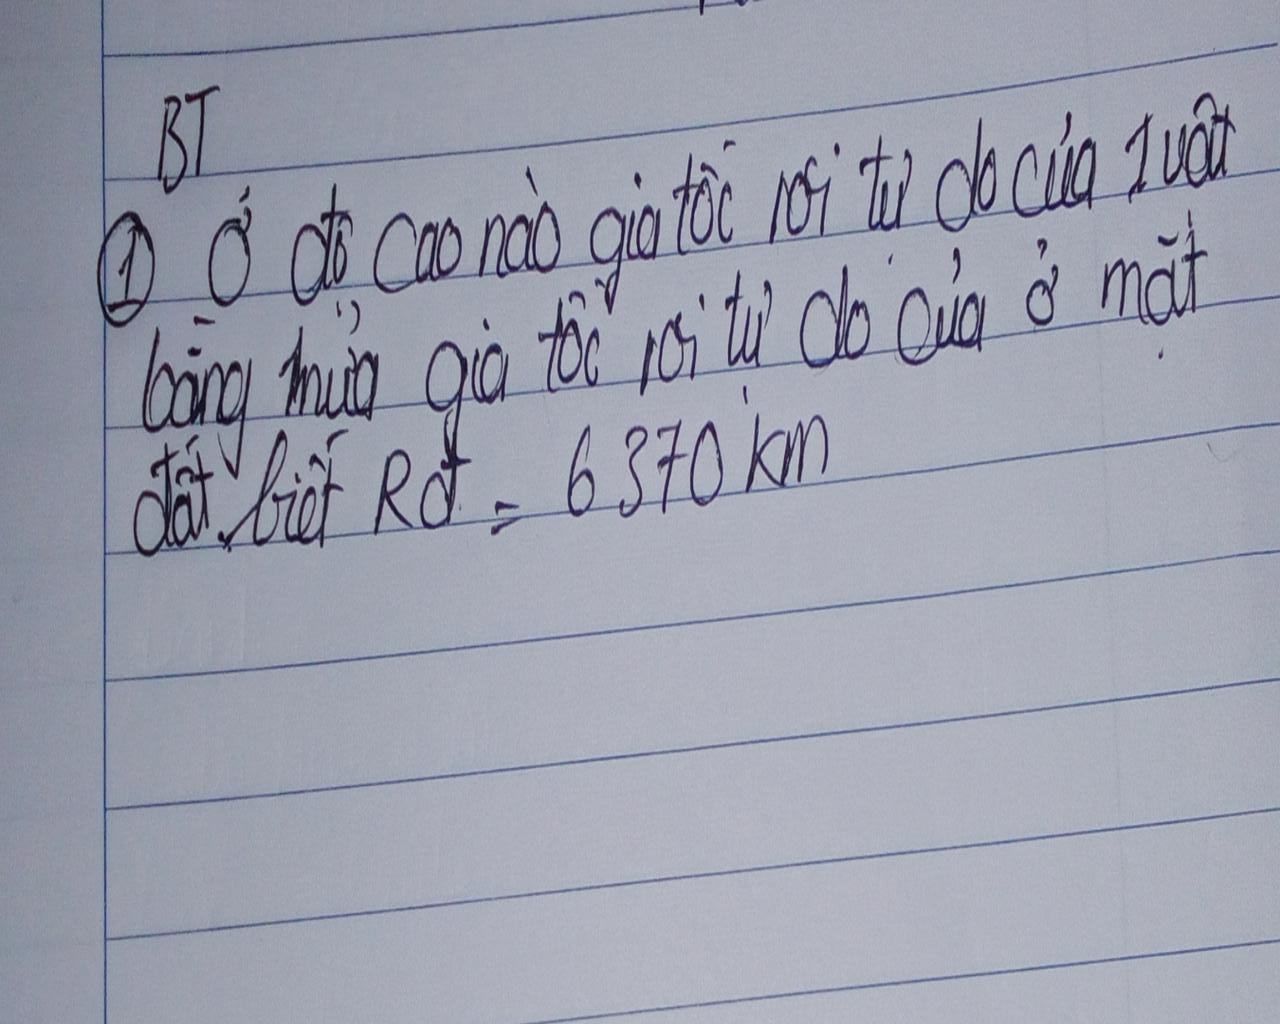 BT
① Ở độ cao nào gia tốc rơi tự do của 1 vật
bằng nửa gia tốc rơi tự do của ở mặt
đất, biết Rđ = 6370 km